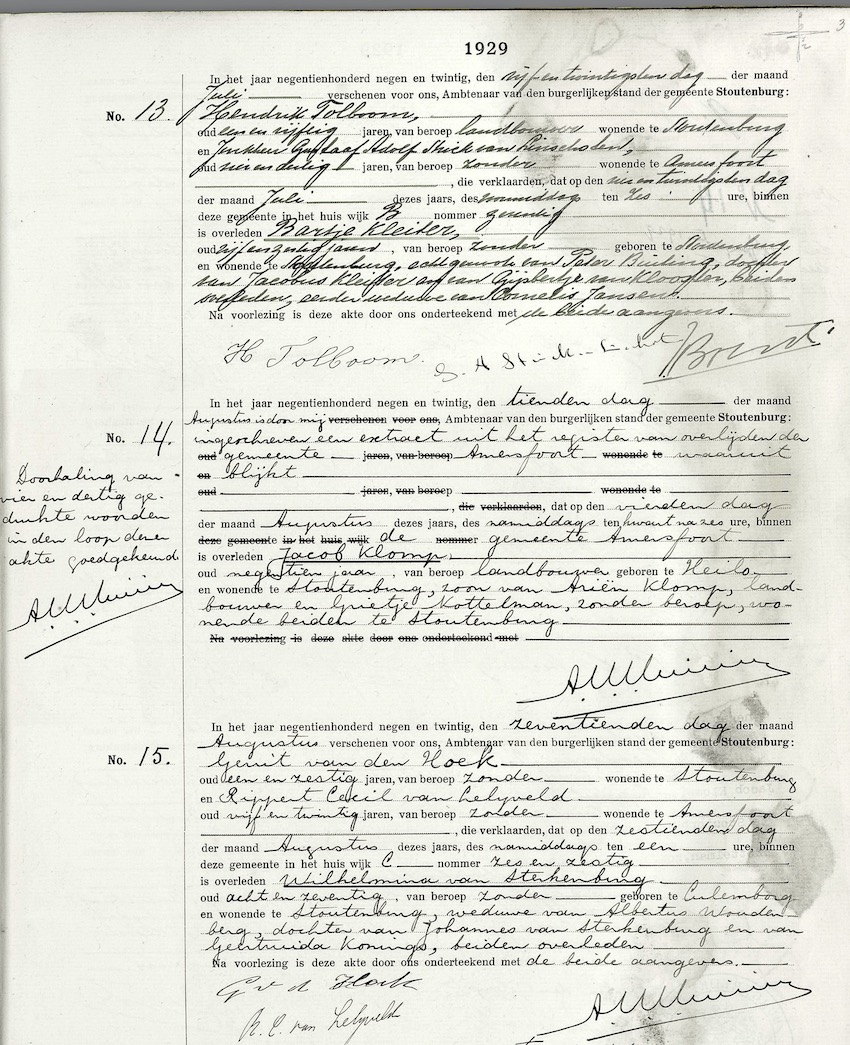 3
1929
In het jaar negentienhonderd negen en twintig, den vijf en twintigsten dag der maand
Juli verschenen voor ons, Ambtenaar van den burgerlijken stand der gemeente Stoutenburg:
No. 13. Hendrik Tolboom,
oud een en vijftig jaren, van beroep landbouwer wonende te Stoutenburg
en Jonkheer Gustaaf Adolf Strick van Linschoten,
oud vier en dertig jaren, van beroep zonder wonende te Amersfoort
, die verklaarden, dat op den vier en twintigsten dag
der maand Juli dezes jaars, des voormiddags ten zes ure, binnen
deze gemeente in het huis wijk B nommer zeventig
is overleden Bartje Kleiter,
oud vijf en zestig jaren, van beroep zonder geboren te Stoutenburg
en wonende te Stoutenburg, echtgenoote van Peter Bunting, dochter
van Jacobus Kleiter en van Gijsbertje van Klooster, beiden
overleden, eerder weduwe van Cornelis Jansen.
Na voorlezing is deze akte door ons onderteekend met de beide aangevers.
H Tolboom.
In het jaar negentienhonderd negen en twintig, den tienden dag der maand
Augustus is door mij verschenen voor ons, Ambtenaar van den burgerlijken stand der gemeente Stoutenburg:
No. 14. ingeschreven een extract uit het register van overlijden der
oud gemeente jaren, van beroep Amersfoort wonende te waaruit
en blijkt
oud jaren, van beroep wonende te
, die verklaarden, dat op den vierden dag
der maand Augustus dezes jaars, des namiddags ten kwart na zes ure, binnen
deze gemeente in het huis wijk de nommer gemeente Amersfoort
is overleden Jacob Klomp,
oud negentien jaar, van beroep landbouwer geboren te Heilo
en wonende te Stoutenburg, zoon van Ariën Klomp, land-
bouwer en Grietje Kottelman, zonder beroep, wo-
nende beiden te Stoutenburg
Na voorlezing is deze akte door ons onderteekend met
Doorhaling van
vier en dertig ge-
drukte woorden
in den loop dezer
akte goedgekeurd
In het jaar negentienhonderd negen en twintig, den zeventienden dag der maand
Augustus verschenen voor ons, Ambtenaar van den burgerlijken stand der gemeente Stoutenburg:
No. 15. Gerrit van den Hoek
oud een en zestig jaren, van beroep zonder wonende te Stoutenburg
en Rippert Cecil van Lelyveld
oud vijf en twintig jaren, van beroep zonder wonende te Amersfoort
, die verklaarden, dat op den zestienden dag
der maand Augustus dezes jaars, des namiddags ten een ure, binnen
deze gemeente in het huis wijk C nommer zes en zestig
is overleden Wilhelmina van Sterkenburg
oud acht en zeventig, van beroep zonder geboren te Culemborg
en wonende te Stoutenburg, weduwe van Albertus Wouden-
berg, dochter van Johannes van Sterkenburg en van
Geertruida Konings, beiden overleden
Na voorlezing is deze akte door ons onderteekend met de beide aangevers.
G v d Hoek
R. C. van Lelyveld